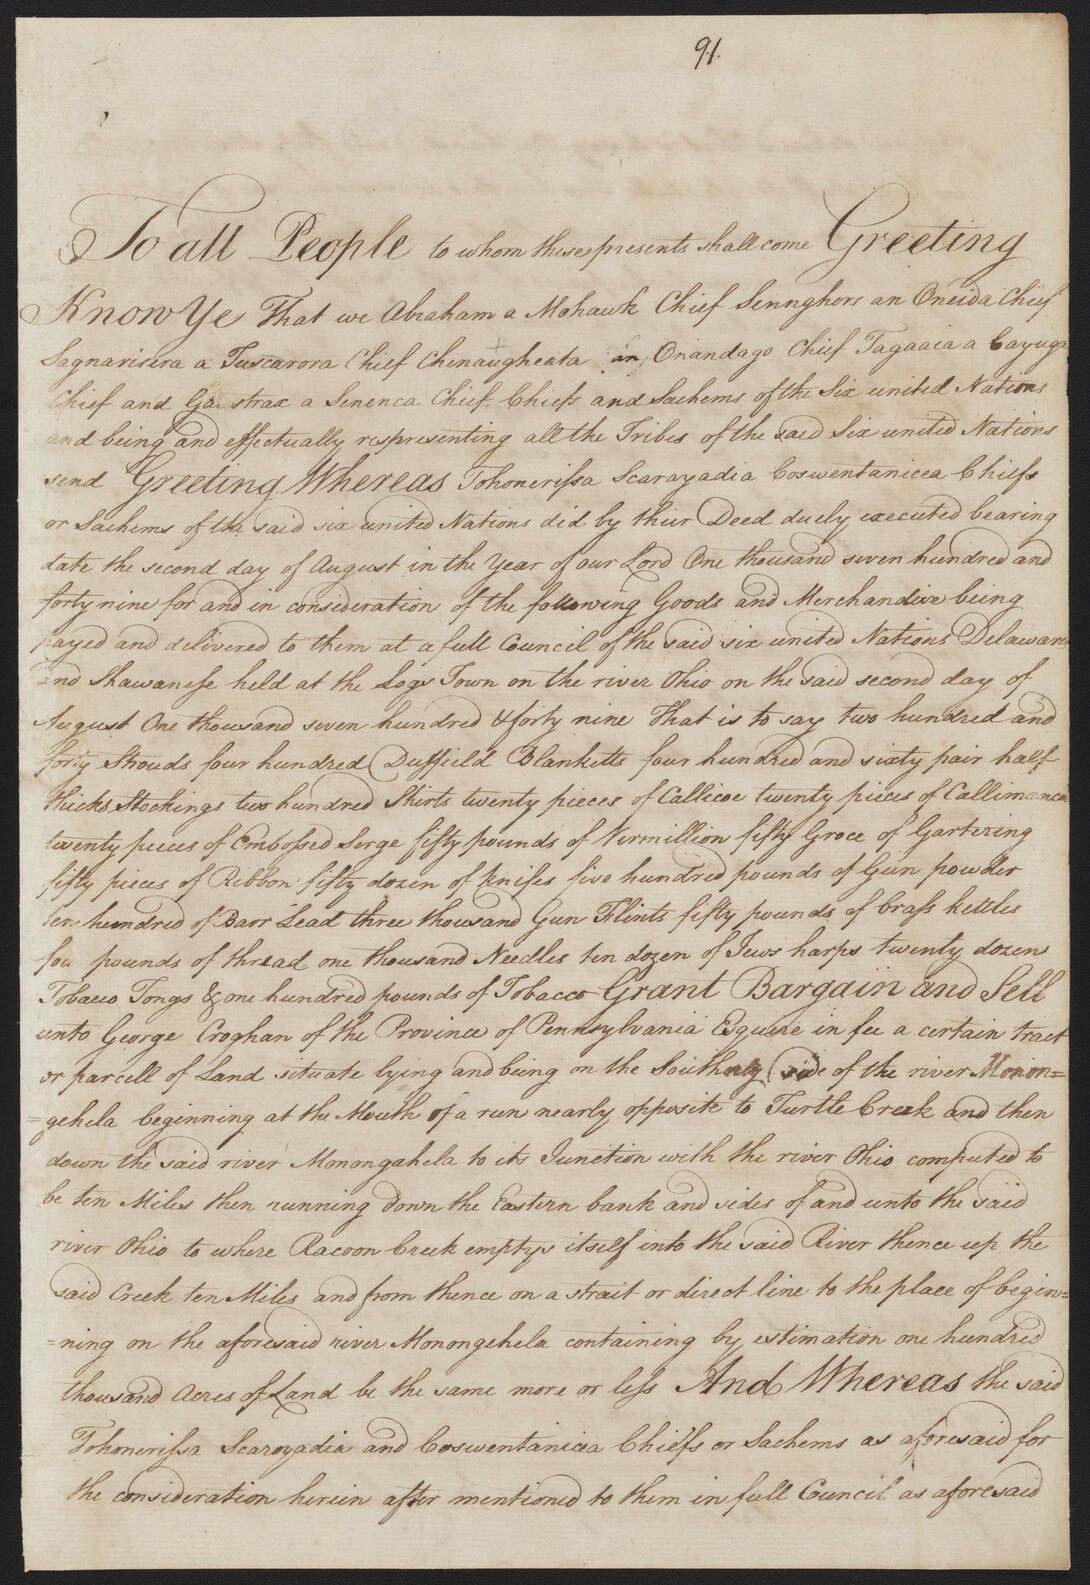 91.
To all People to whom these presents shall come Greeting
Know Ye That we Abraham a Mohawk Chief Sennghors an Oneida Chief
Sagnarisera a Tuscarora Chief Chenaugheata an Onandago Chief Tagaaia a Cayuga
Chief and Gaustrax a Seneca Chief Chiefs and Sachems of the Six united Nations
and being and effectually respresenting all the Tribes of the said Six united Nations
send Greeting Whereas Tohonerissa Scarayadia Coswentanicea Chiefs
or Sachems of the said six united Nations did by their Deed duely executed bearing
date the second day of August in the Year of our Lord One thousand seven hundred and
forty nine for and in consideration of the following Goods and Merchandize being
payed and delivered to them at a full Council of the said six united Nations Delawares
and Shawanese held at the Logs Town on the river Ohio on the said second day of
August One thousand seven hundred & forty nine That is to say two hundred and
forty Strouds four hundred Duffield Blanketts four hundred and sixty pair half
thicks Stockings two hundred Shirts twenty pieces of Callicoe twenty pieces of Callimanco
twenty pieces of Embossed Serge fifty pounds of Vermillion fifty Groce of Gartering
fifty pieces of Ribbon fifty dozen of knifes five hundred pounds of Gun powder
ten hundred of Barr Lead three thousand Gun Flints fifty pounds of brass kettles
four pounds of thread one thousand Needles ten dozen of Jews harps twenty dozen
Tobacco Tongs & one hundred pounds of Tobacco Grant Bargain and Sell
unto George Croghan of the Province of Pennsylvania Esquire in fee a certain tract
or parcell of Land situate lying and being on the Southerly side of the river Monon=
=gehela beginning at the Mouth of a run nearly opposite to Turtle Creek and then
down the said river Monongahela to its Junction with the river Ohio computed to
be ten Miles then running down the Eastern bank and sides of and unto the said
river Ohio to where Racoon Creek emptys itself into the said River thence up the
said Creek ten Miles and from thence on a strait or direct line to the place of begin=
=ning on the aforesaid river Monongehela containing by estimation one hundred
thousand Acres of Land be the same more or less And Whereas the said
Tohonerissa Scaroyadia and Coswentanicea Chiefs or Sachems as aforesaid for
the consideration herein after mentioned to them in full Council as aforesaid